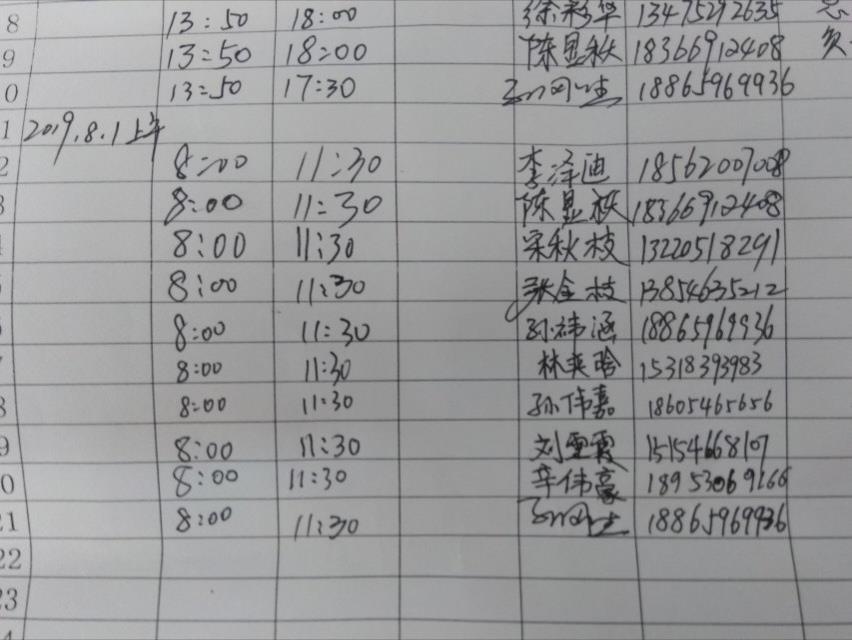 8 13:50 18:00 徐彩华 13475292635
9 13:50 18:00 陈显秋 18366912408
0 13:50 17:30 18865969936
1 2019.8.1上午
2 8:00 11:30 李泽迪 18562007008
3 8:00 11:30 陈显秋 18366912408
4 8:00 11:30 宋秋枝 13220518291
5 8:00 11:30 张金枝 13854635212
6 8:00 11:30 孙祎涵 18865969936
7 8:00 11:30 林奕晗 15318393983
8 8:00 11:30 孙伟嘉 18605465656
9 8:00 11:30 刘雪霞 15154668107
0 8:00 11:30 辛伟豪 18953069166
21 8:00 11:30 18865969936
22
23